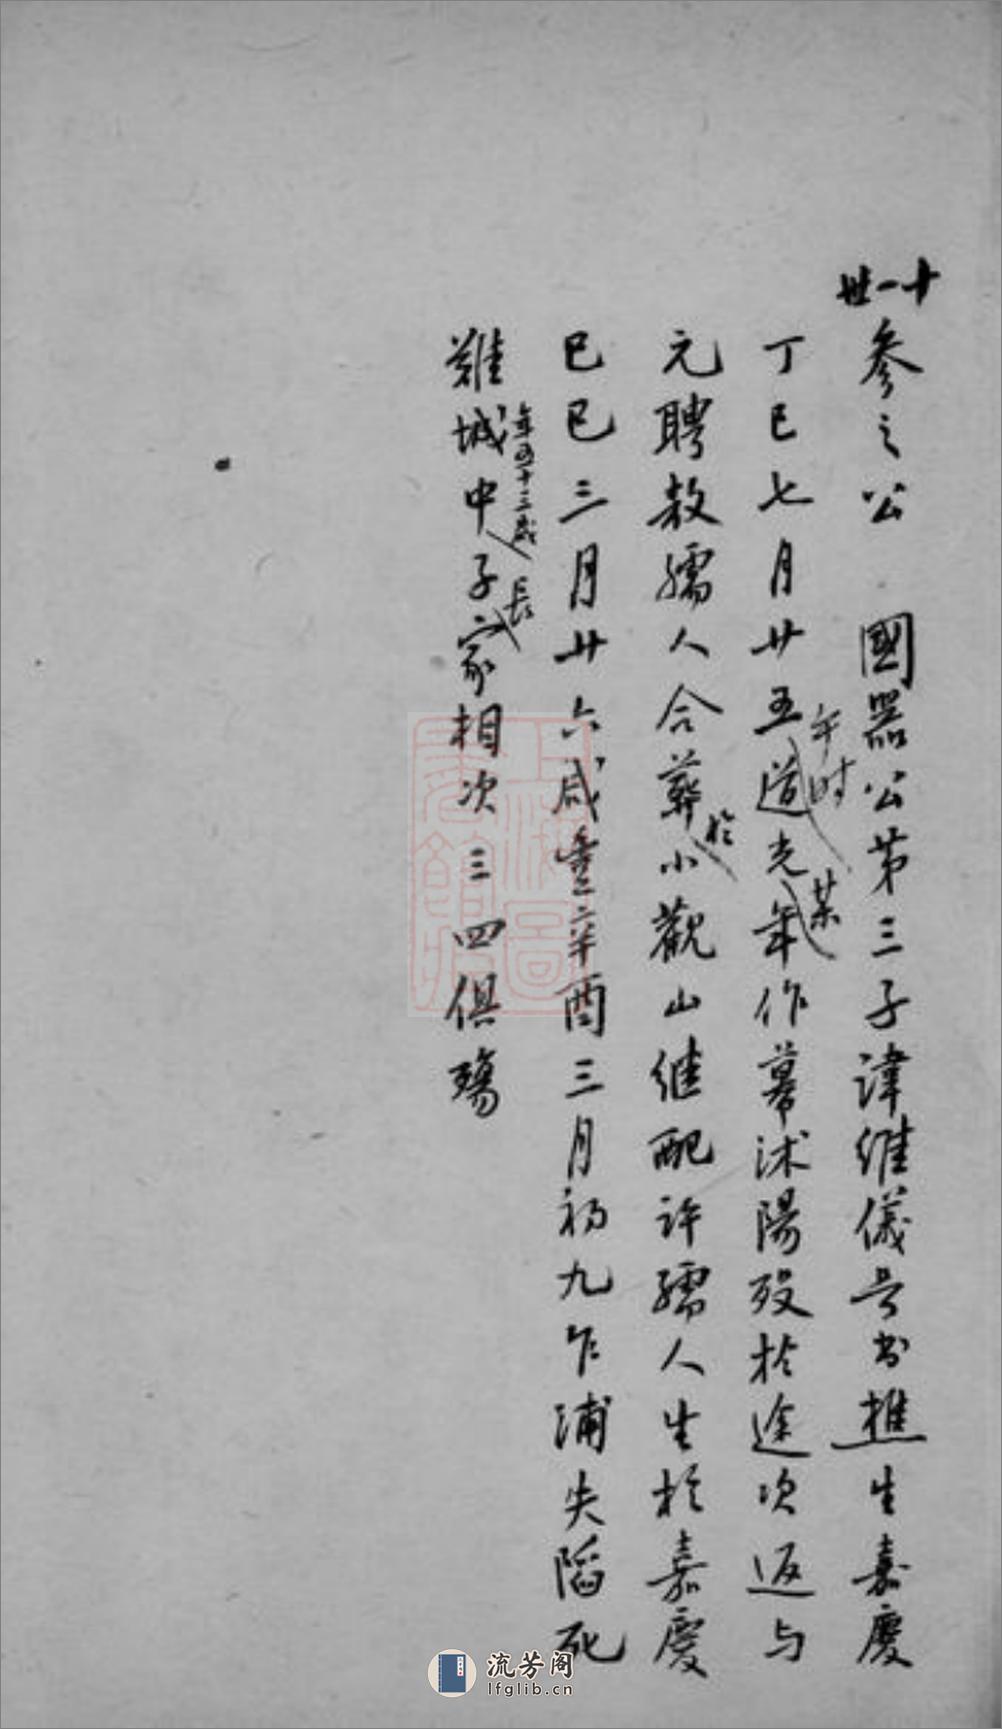 十一世
參之公 國器公第三子諱維儀号書樵生嘉慶
丁巳七月廿五午時道光某年作幕沭陽歿於途次返与
元聘敖孺人合葬於小觀山継配許孺人生於嘉慶
己巳三月廿六咸豊辛酉三月初九乍浦失陷死
難城中年五十三歲子長家相次三四俱殤
上海圖書館藏
流芳阁
lfglib.cn